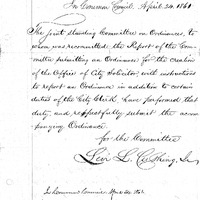 In Common Council, April 24, 1861
The joint standing Committee on Ordinances, to
whom was recommitted the Report of the Com-
mittee submitting an Ordinance for the creation
of the Office of City Solicitor, with instructions
to report an Ordinance in addition to certain
duties of the City Clerk, have performed that
duty, and respectfully submit the accom-
panying Ordinance.
for the Committee
Levi L. Cushing, Jr.
In Common Council